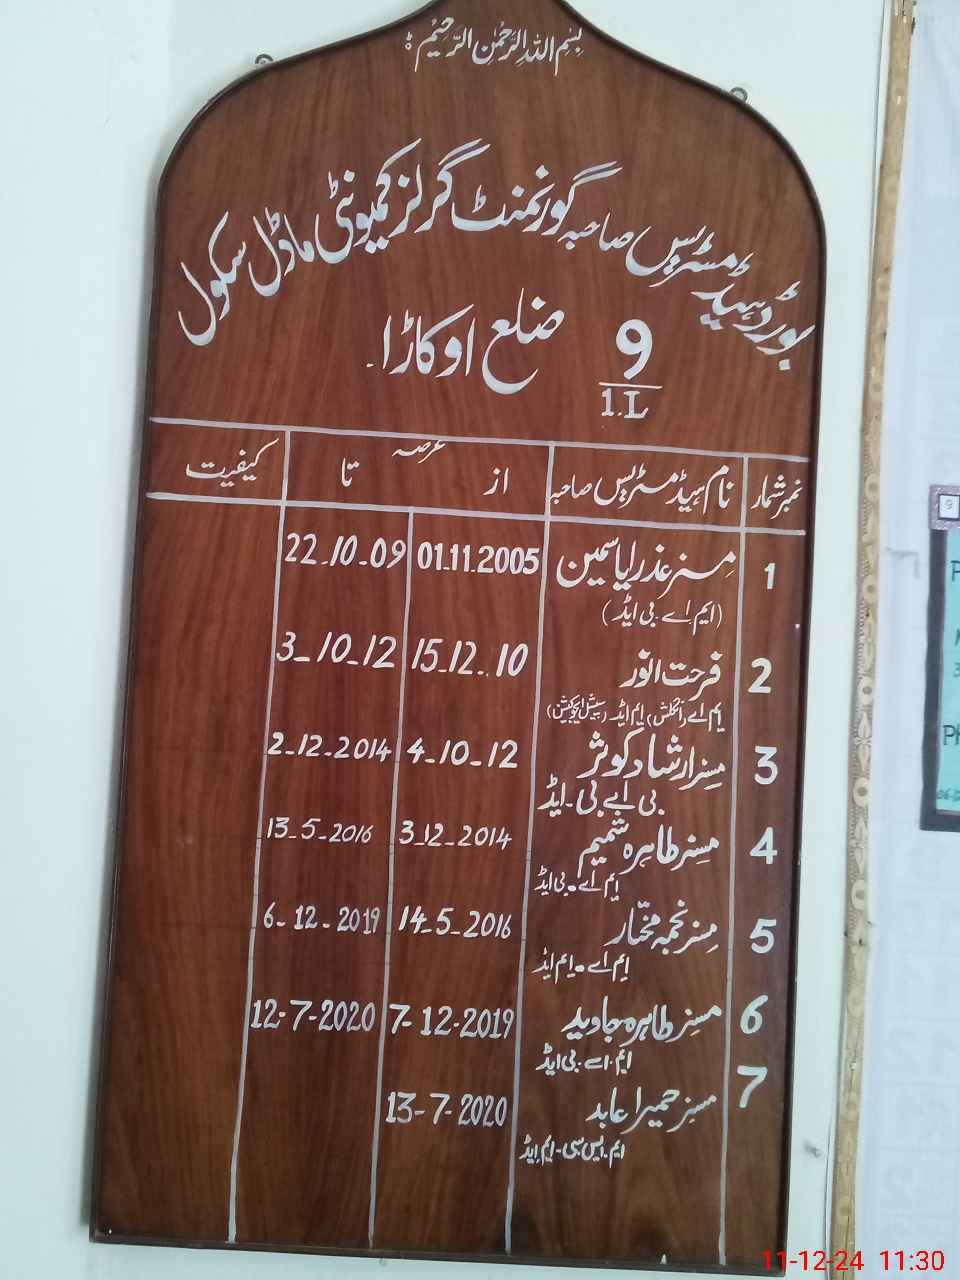 بسم اللہ الرحمن الرحیم
بورڈ ہیڈ مسٹریس صاحبہ گورنمنٹ گرلز کمیونٹی ماڈل سکول
9/1.L ضلع اوکاڑا۔
نمبر شمار نام ہیڈ مسٹریس صاحبہ عرصہ از تا کیفیت
1 مسز عذرا یاسمین 01.11.2005 22.10.09
(ایم اے۔ بی ایڈ)
2 فرحت انور 15.12.10 3-10-12
ایم اے (انگلش) ایم ایڈ (سپیشل ایجوکیشن)
3 مسز ارشاد کوثر 4-10-12 2-12-2014
بی اے بی۔ایڈ
4 مسز طاہرہ شمیم 3-12-2014 13-5-2016
ایم اے۔ بی ایڈ
5 مسز نجمہ مختار 14-5-2016 6-12-2019
ایم اے۔ ایم ایڈ
6 مسز طاہرہ جاوید 7-12-2019 12-7-2020
ایم۔اے۔بی ایڈ
7 مسز حمیرا عابد 13-7-2020
ایم۔ایس سی۔ ایم ایڈ
11-12-24 11:30